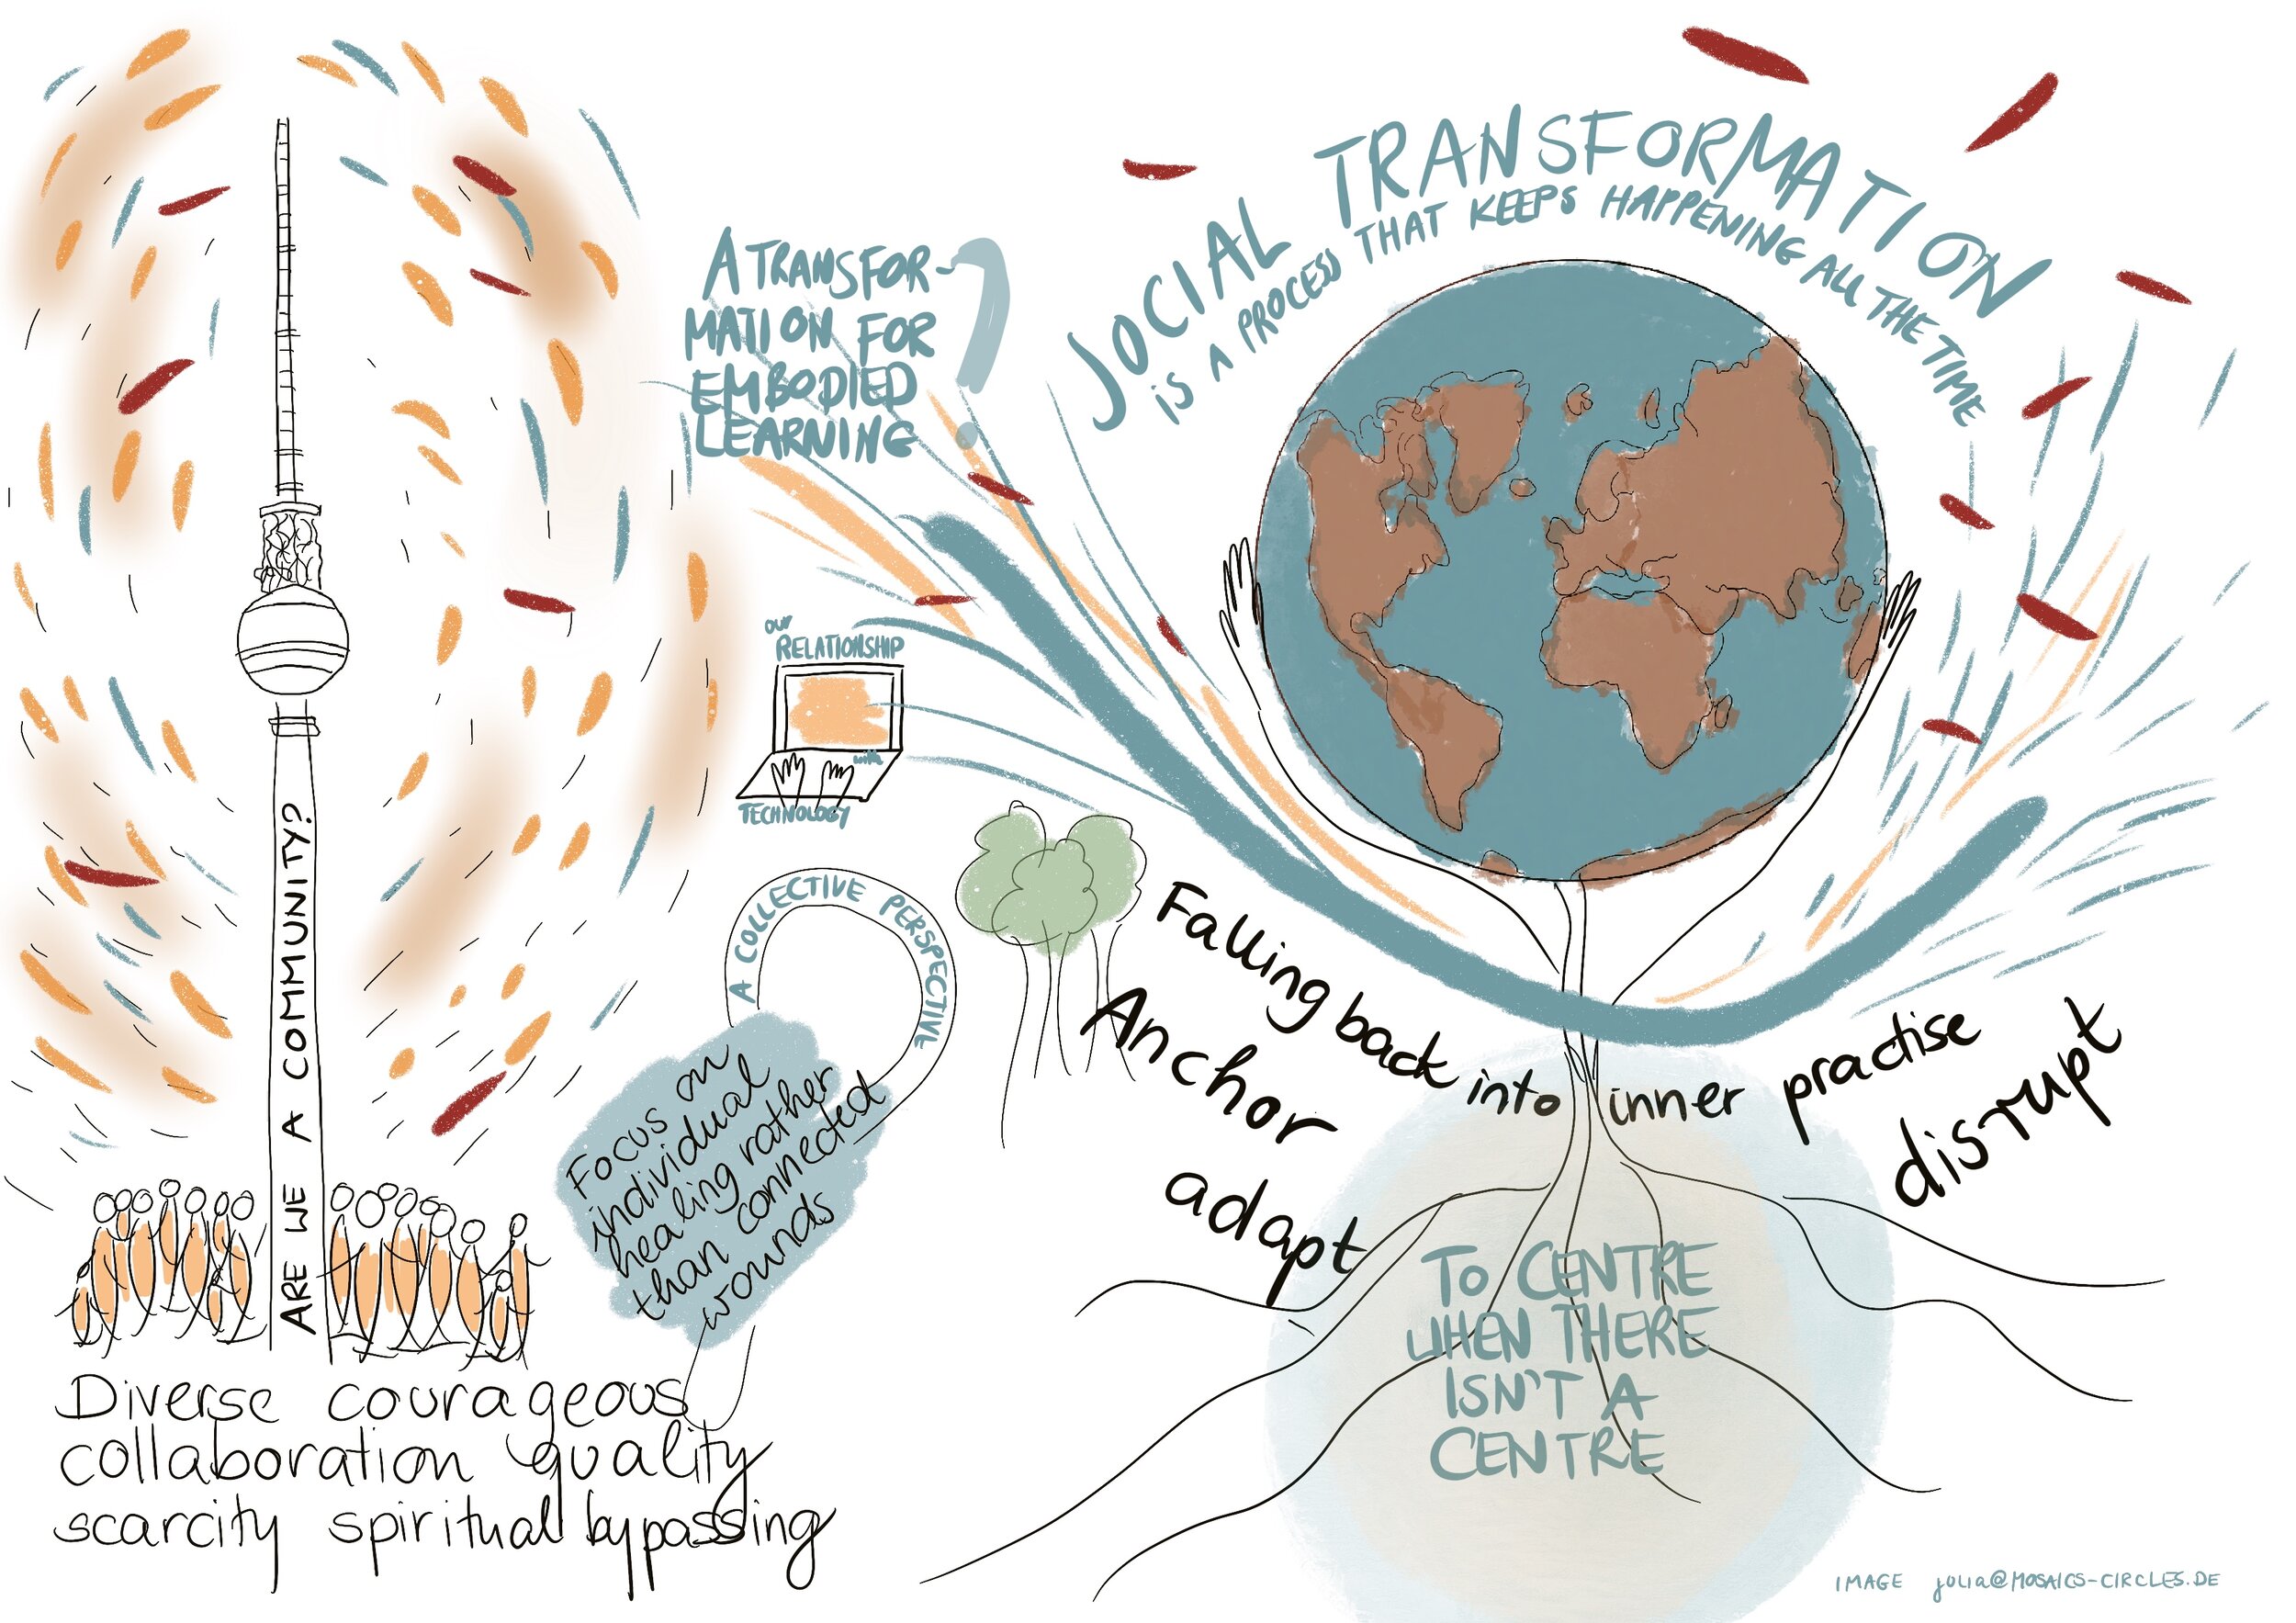 A TRANSFOR-
MATION FOR
EMBODIED
LEARNING?
SOCIAL TRANSFORMATION
IS A PROCESS THAT KEEPS HAPPENING ALL THE TIME
our
RELATIONSHIP
with
TECHNOLOGY
ARE WE A COMMUNITY?
A COLLECTIVE PERSPECTIVE
Focus on
individual
healing rather
than connected
wounds
Falling back into inner practise
Anchor
adapt
disrupt
TO CENTRE
WHEN THERE
ISN'T A
CENTRE
Diverse courageous
collaboration quality
scarcity spiritual bypassing
IMAGE julia@MOSAICS-CIRCLES.DE